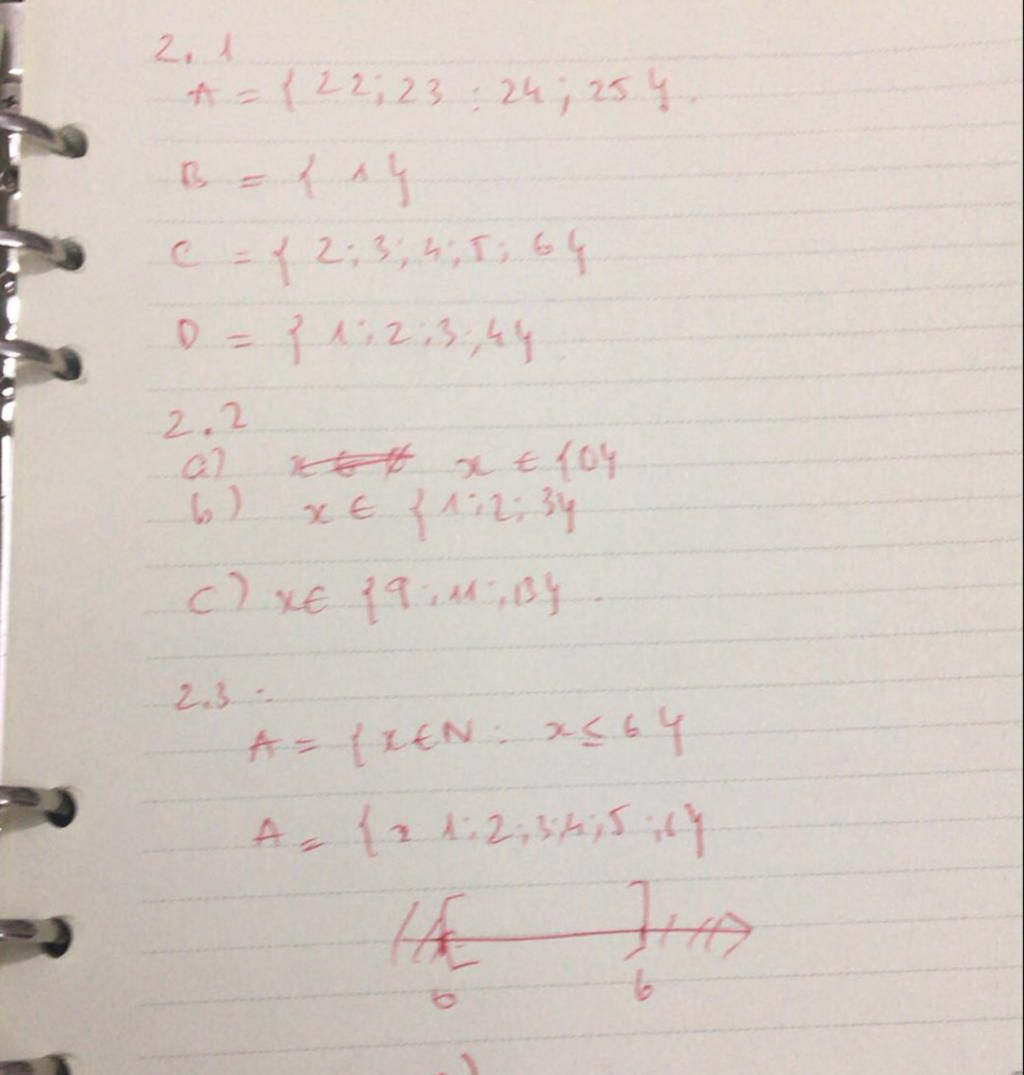 2.1
A = { 22; 23 : 24; 25 }.
B = { 1 }
C = { 2; 3; 4; 5; 6 }
D = { 1; 2; 3; 4 }
2.2
a) x ∈ {0}
b) x ∈ { 1; 2; 3 }
c) x ∈ { 9; 11; 13 }.
2.3 :
A = { x ∈ N : x ≤ 6 }
A = { 1; 2; 3; 4; 5; 6 }
0 6